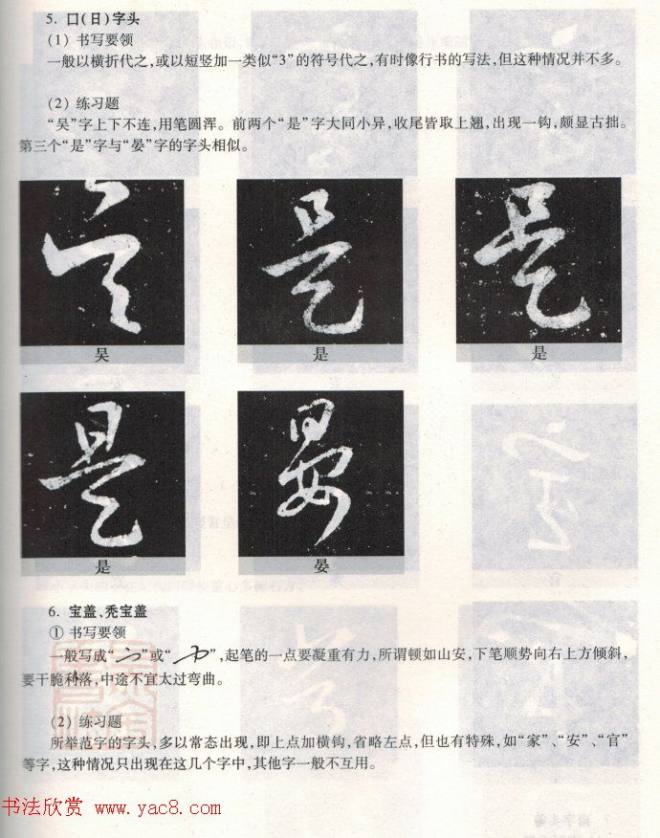 5. 口(日)字头
(1) 书写要领
一般以横折代之,或以短竖加一类似“3”的符号代之,有时像行书的写法,但这种情况并不多。
(2) 练习题
“吴”字上下不连,用笔圆浑。前两个“是”字大同小异,收尾皆取上翘,出现一钩,颇显古拙。
第三个“是”字与“晏”字的字头相似。
吴
是
是
是
晏
6. 宝盖、秃宝盖
① 书写要领
一般写成“”或“”,起笔的一点要凝重有力,所谓顿如山安,下笔顺势向右上方倾斜,
要干脆利落,中途不宜太过弯曲。
(2) 练习题
所举范字的字头,多以常态出现,即上点加横钩,省略左点,但也有特殊,如“家”、“安”、“官”
等字,这种情况只出现在这几个字中,其他字一般不互用。
书法欣赏 www.yac8.com